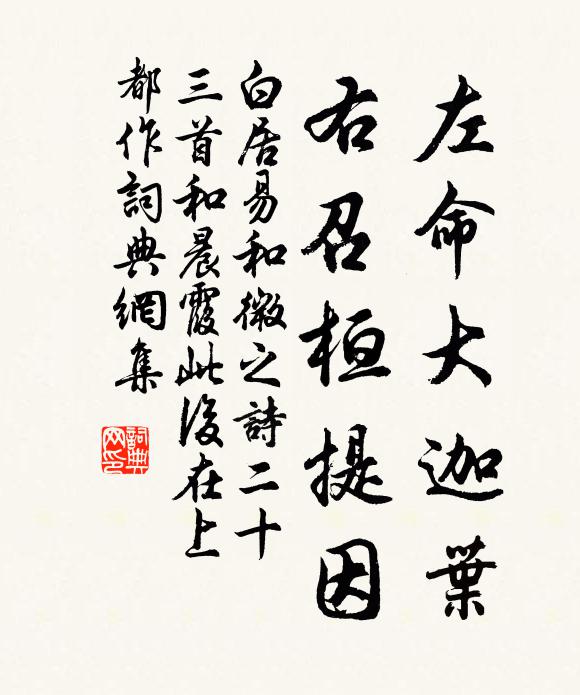 左命大迦葉
右召桓提因
白居易和微之詩二十
三首和晨霞此後在上
都作詞典網集
詞典網印